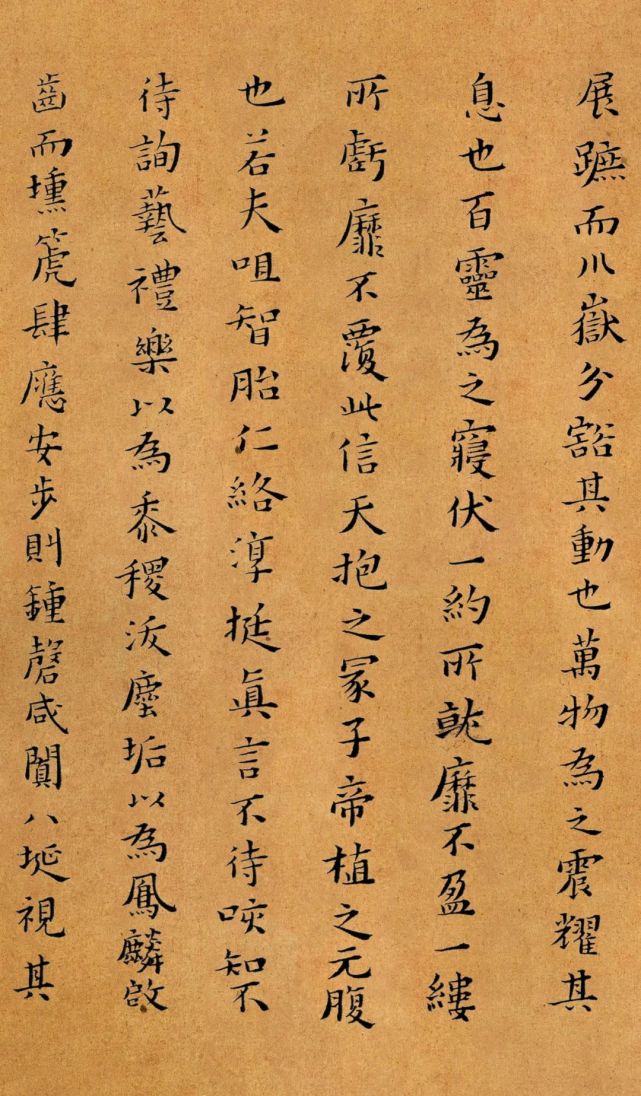 展蹠而川嶽分豁其動也萬物為之震耀其
息也百靈為之寢伏一約所就靡不盈一縷
所虧靡不覆此信天抱之冢子帝植之元腹
也若夫咀智胎仁絡淳挺真言不待咳知不
待詢藝禮樂以為黍稷泼塵垢以為鳳麟啟
齒而壎篪肆應安步則鍾磬咸闐八埏視其